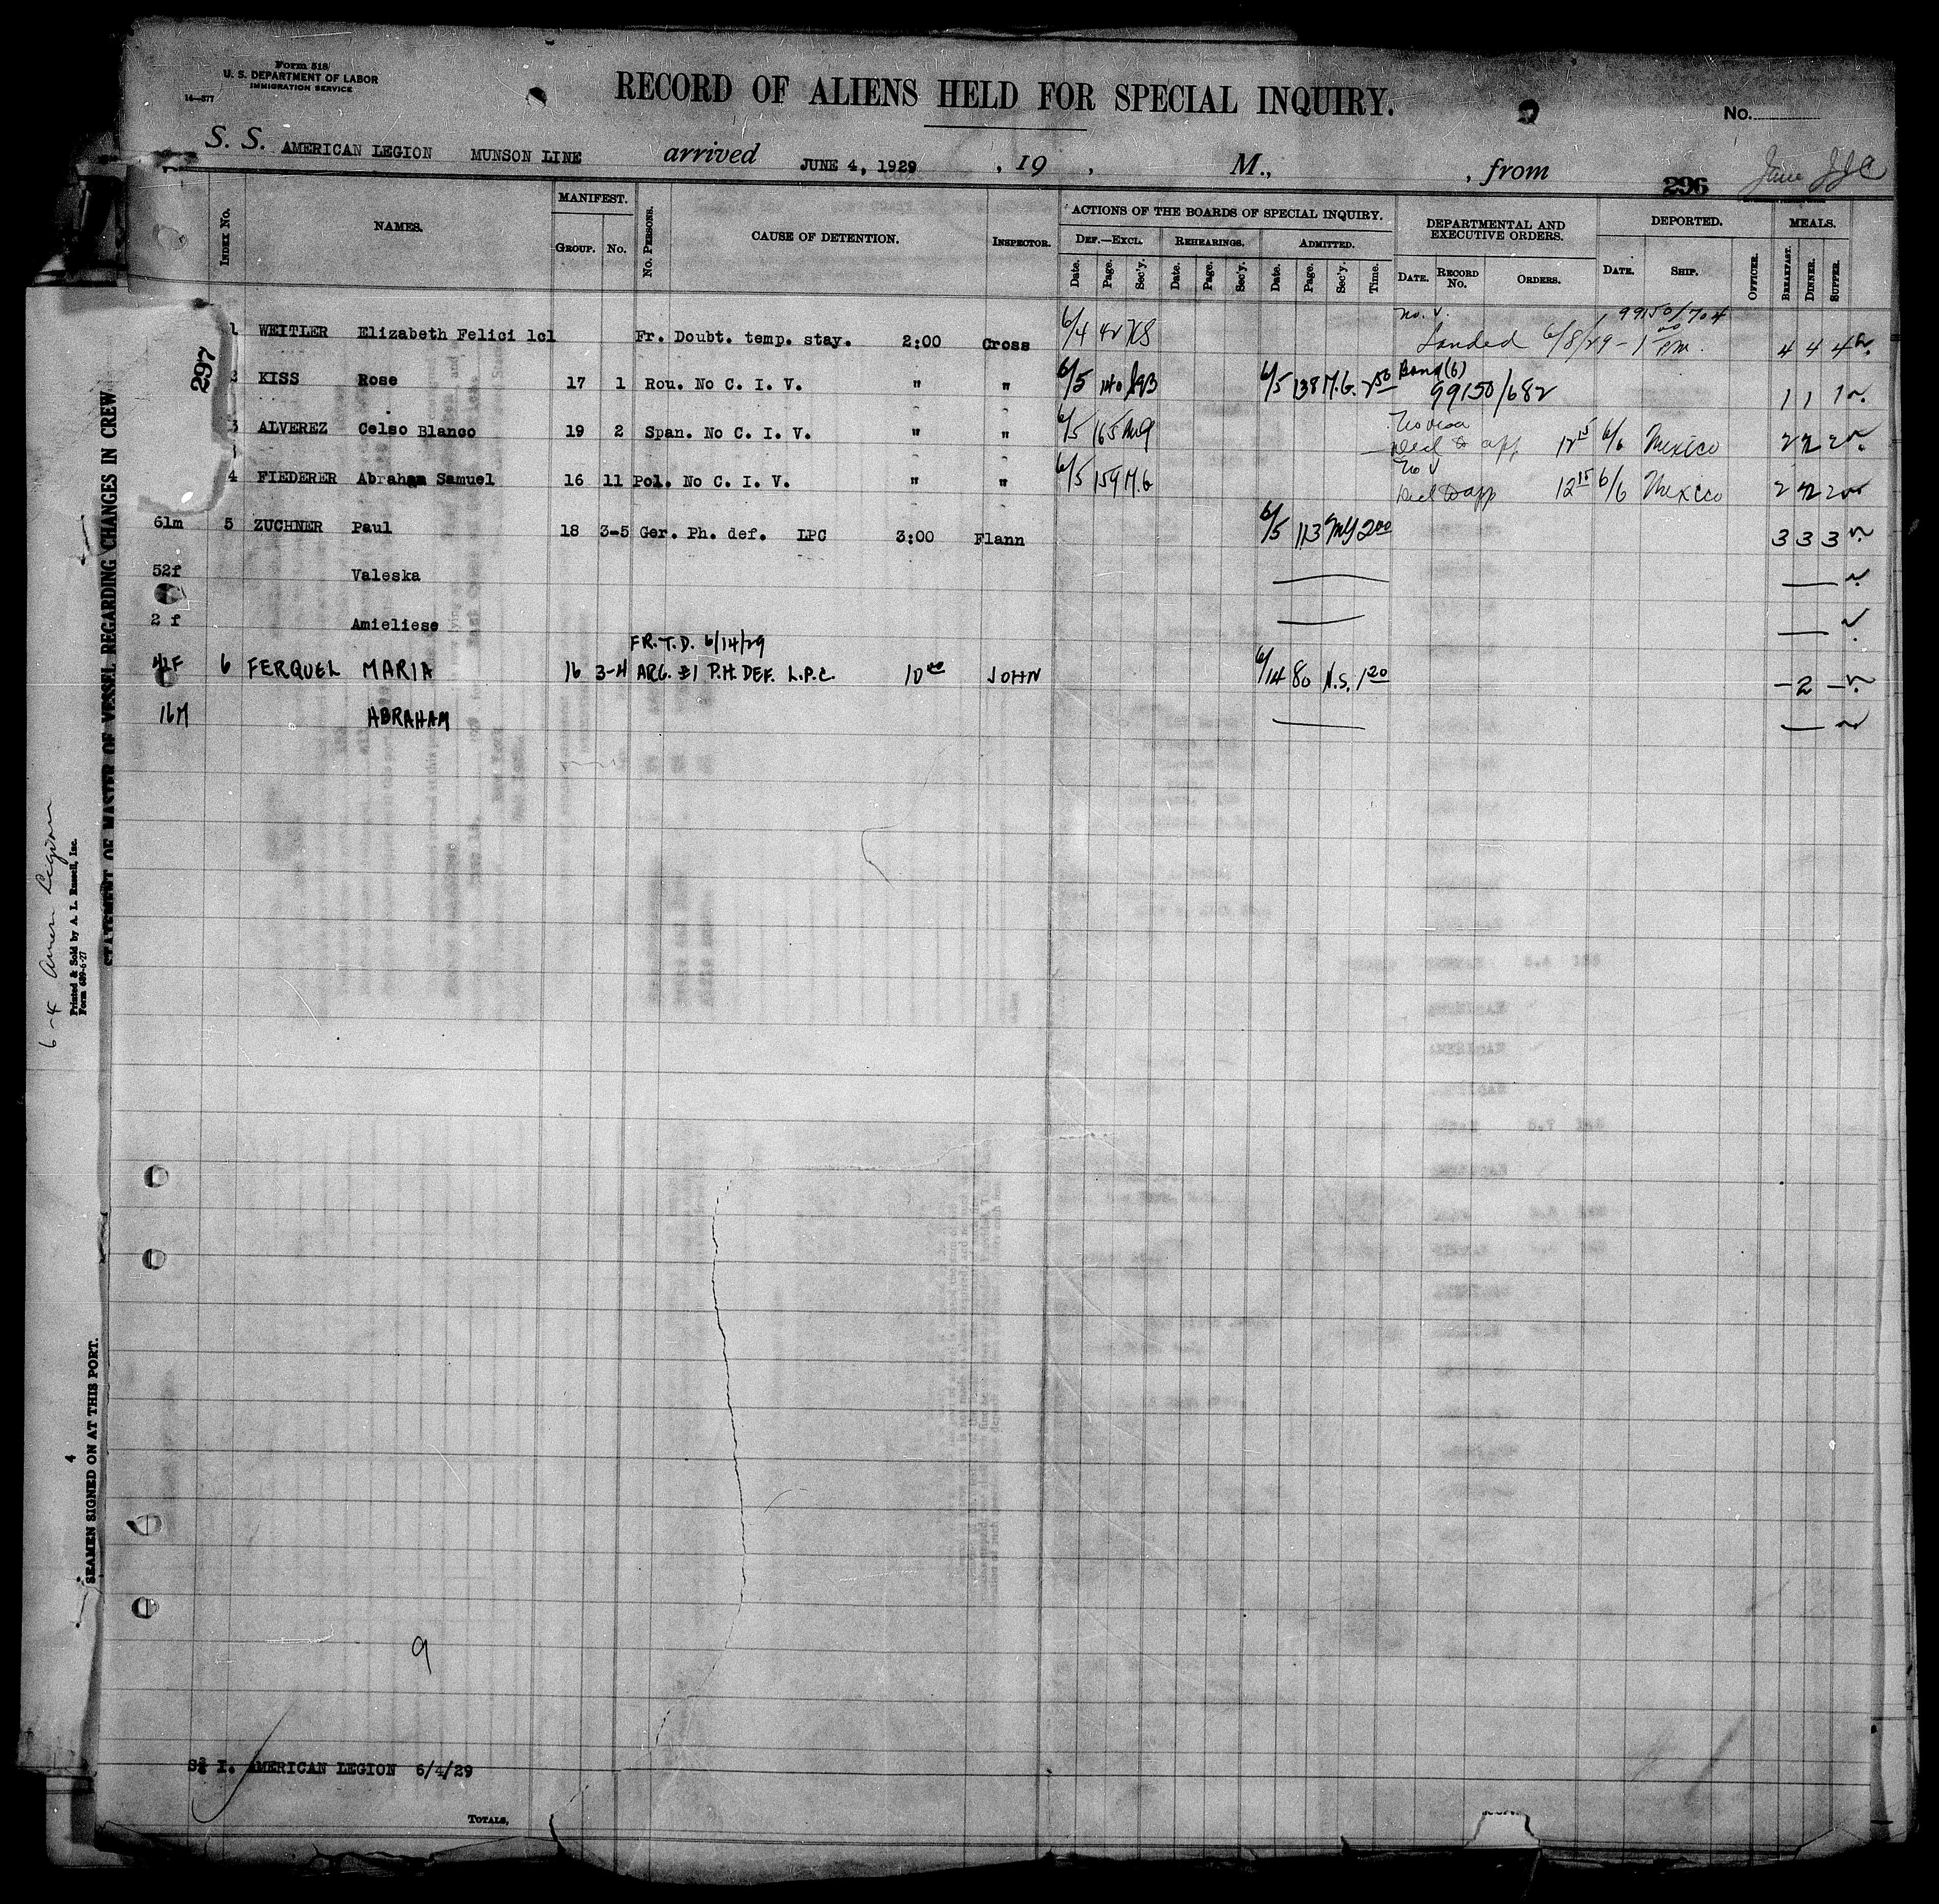 Form 518
U. S. DEPARTMENT OF LABOR
IMMIGRATION SERVICE
14—577
RECORD OF ALIENS HELD FOR SPECIAL INQUIRY.
No.
S. S. AMERICAN LEGION MUNSON LINE arrived JUNE 4, 1929 , 19 , M., , from
296
INDEX NO. NAMES. MANIFEST. GROUP. NO. NO. PERSONS. CAUSE OF DETENTION. INSPECTOR. ACTIONS OF THE BOARDS OF SPECIAL INQUIRY. DEPARTMENTAL AND EXECUTIVE ORDERS. DEPORTED. MEALS.
DEF.—EXCL. REHEARINGS. ADMITTED.
Date. Page. Sec'y. Date. Page. Sec'y. Date. Page. Sec'y. Time. DATE. RECORD NO. ORDERS. DATE. SHIP. OFFICER. BREAKFAST. DINNER. SUPPER.
no. V. 99150/704
1 WEITLER Elizabeth Felici lcl Fr. Doubt. temp. stay. 2:00 Cross 6/4 42 Landed 6/8/29 - 1 00 PM. 4 4 4
297
Bond (6)
2 KISS Rose 17 1 Rou. No C. I. V. " " 6/5 140 6/5 138 M.G. 2 50 99150/682 1 1 1
No visa
3 ALVEREZ Celso Blanco 19 2 Span. No C. I. V. " " 6/5 165 12 15 6/6 Mexico 2 2 2
No V
4 FIEDERER Abraham Samuel 16 11 Pol. No C. I. V. " " 6/5 159 M.G 12 15 6/6 Mexico 2 2 2
61m 5 ZUCHNER Paul 18 3-5 Ger. Ph. def. LPC 3:00 Flann 6/5 113 2 00 3 3 3
52f Valeska
2 f Amieliese
FR. T. D. 6/14/29
41F 6 FERQUEL MARIA 16 3-4 ARG. #1 P.H. DEF. L.P.C. 10 00 JOHN 6/14 80 N.S. 1 20 – 2 –
16M ABRAHAM
9
S I. AMERICAN LEGION 6/4/29
TOTALS,
STATEMENT OF MASTER OF VESSEL REGARDING CHANGES IN CREW
6-4 Amer Legion
Printed & Sold by A. L. Russell, Inc.
Form 689-6-27
4
SEAMEN SIGNED ON AT THIS PORT.